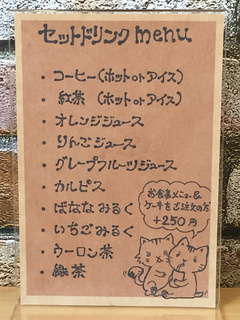 セットドリンク menu
・コーヒー(ホット or アイス)
・紅茶 (ホット or アイス)
・オレンジジュース
・りんごジュース
・グレープフルーツジュース
・カルピス
・ばなな みるく
・いちご みるく
・ウーロン茶
・緑茶
お食事メニュー&
ケーキをご注文の方
+250円